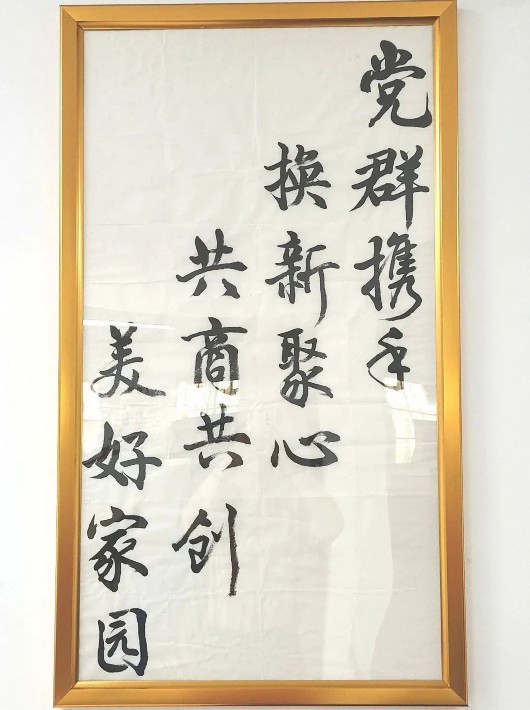 党群携手
换新聚心
共商共创
美好家园